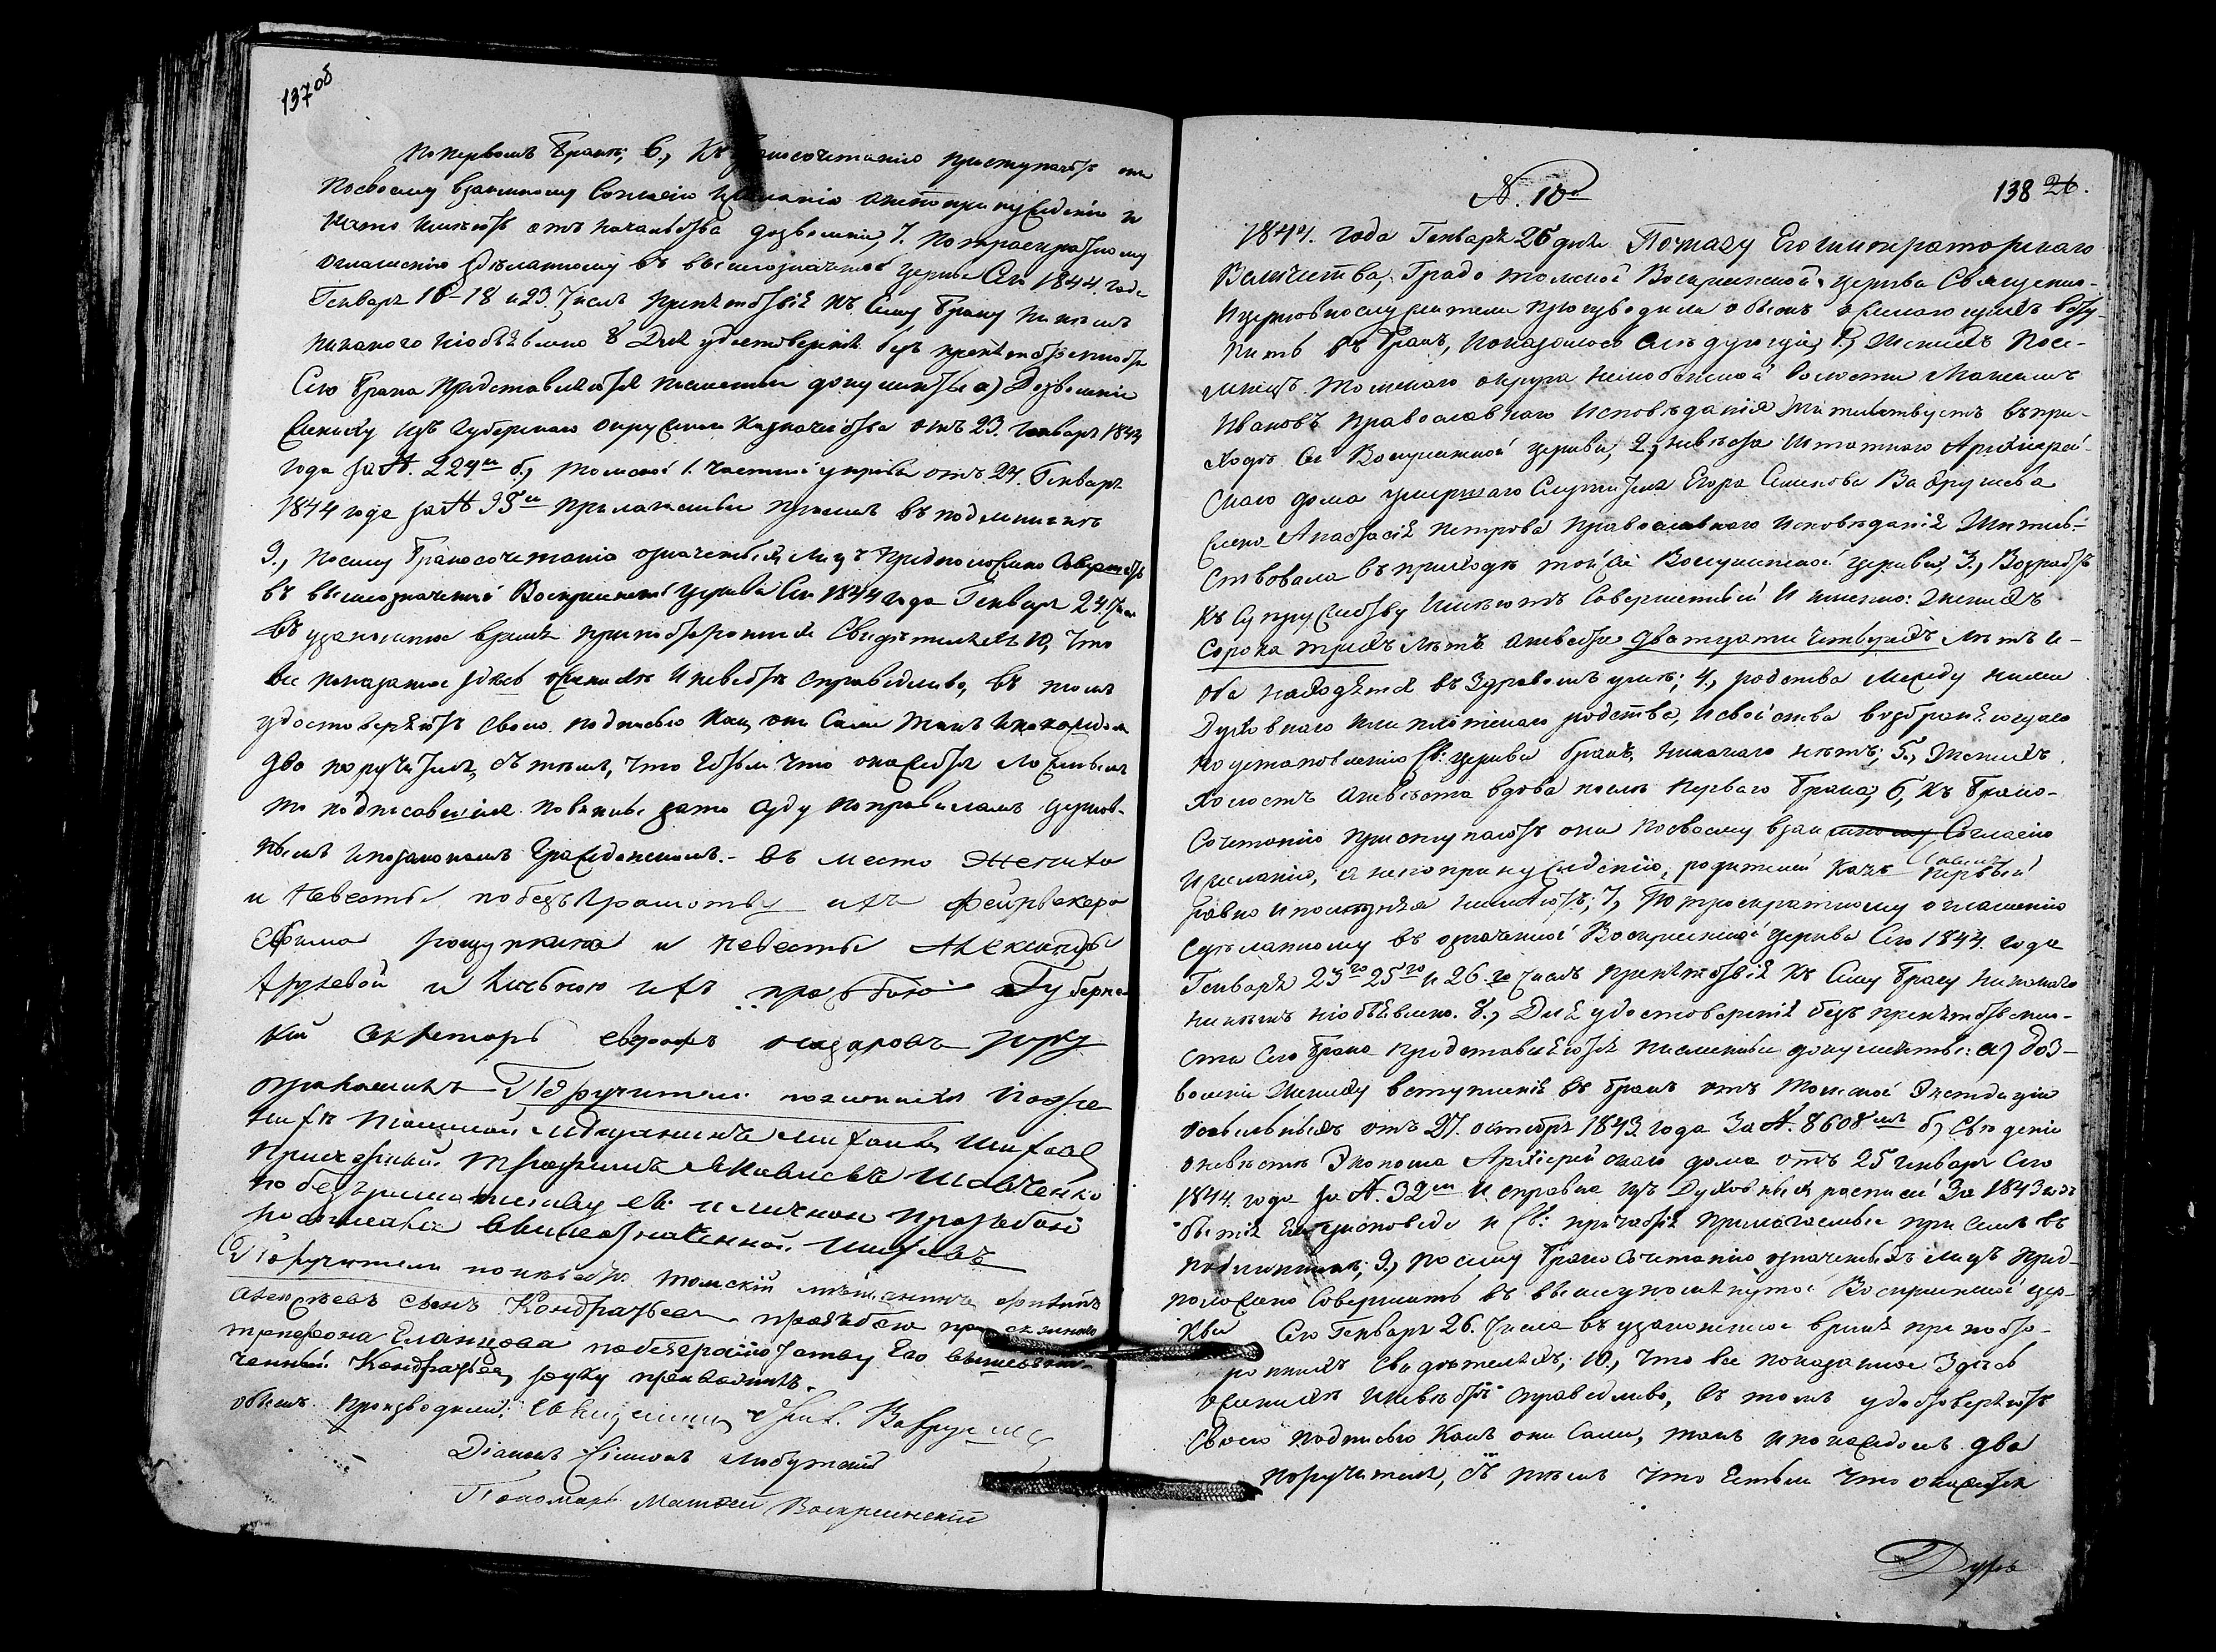 137 об
По первом бракѣ; 6., Къ бракосочетанію приступаютъ они
по своему взаимному согласію и желанію а не по принужденію и
на то имѣютъ отъ начальства дозволеніе, 7. По троекратному
оглашенію здѣланному въ вышеозначенной церкви сего 1844. года
Генваря 16-18 и 23. числъ препятствія къ сему браку никемъ
никакого необъявлено 8 Для удостоверенія безпрепятственности
сего брака представляются письменные документы а) Дозволеніе
жениху изъ Губернскаго окружнаго казначейства отъ 23. генваря 1844
года за № 224м б., Томской 1. частной управы отъ 24. Генваря
1844 года за № 95м прилагаемые присемъ въ подлинникѣ
9., По сему бракосочетаніе означенныхъ лицъ предположено совершить
въ вышеозначенной Воскресенской церкви сего 1844 года Генваря 24. числа
въ узаконенное время при постороннихъ свидѣтеляхъ 10, Что
все показанное здесь о женихѣ и невѣстѣ справедливо, въ томъ
удостоверяютъ своею подписью какъ они сами такъ и по каждомъ
два поручителя, съ темъ, что естьли что окажется ложнымъ
то подписавшіяся повинны за то суду по правиламъ церков-
нымъ и по законамъ Гражданскимъ.- въ место жениха
и невесты по безъграмотству ихъ фейрвекера
Ефима и невесты Александры
и личною ихъ прозбою Губернс
кій секретарь руку
приложилъ Поручители по женихѣ
Томской мещанинъ
Трофимъ Яковлевъ Шевченко
по безграмотству ево и личной прозьбой
вышеозначенной
Поручители по невѣсте томскій мѣщанинъ
Алексѣевъ сынъ Кондратьевъ прозьбою
Еланцова по безграмотству Его вышеозна-
ченный Кондратьевъ руку приложилъ.
обыскъ производили: Священникъ
Діаконъ Симеонъ
Пономарь Матвей Воскресенскій
138 26.
N. 10й
1844. года Генваря 26 дня По указу Его императорскаго
Величества, Градо томской Воскресенской церкви Священно-
и церковнослужители производили обыскъ о желающихъ всту-
пить въ бракъ, показалось слѣдующее; 1., Женихъ посе-
ленецъ Томскаго округа Нелюбинской волости
Ивановъ православнаго исповѣданія жительствуетъ въ при-
ходѣ сей Воскресенской церкви, 2., невѣста штатнаго Архіерей-
скаго дома умершаго служителя Егора Семенова Вавружева
жена Анастасія Петрова православнаго исповѣданія житель-
ствовала въ приходѣ той же Воскресенской церкви, 3., Возрастъ
къ супружеству имѣютъ совершенный и именно: женихъ
сорока трехъ лѣтъ а невеста дватцати четырехъ лѣтъ и-
оба находятся въ здравомъ умѣ; 4., родства между ними
духовнаго или плотскаго родства, и свойства возбраняющаго
по установленію св: церкви бракъ, никакого нѣтъ; 5., Женихъ
холостъ а невѣста вдова послѣ перваго брака; 6, Къ брако-
сочетанію приступаютъ они по своему взаимному согласію
и желанію, а не по принужденію; родителей какъ первый
равно и последняя неимѣютъ; 7, По троекратному оглашенію
сдѣланному въ означенной Воскресенской церкви сего 1844. года
Генваря 23го 25го и 26.го числъ препятствія къ сему браку никакого
никемъ необъявлено. 8., Для удостоверенія безпрепятственно-
сти сего брака представляются письменные документы: а) доз-
воленіе жениху вступленія въ бракъ отъ Томской Экспедиціи
о ссыльныхъ отъ 27. октября 1843. года за № 8608мъ б, Свѣденіе
о невѣстѣ Эконома Архіерейскаго дома отъ 25 генваря сего
1844. года за № 32м и справка изъ Духовныхъ росписей за 1843 годъ
бытія Ея у исповеди и Св: причастія прилагаемые при семъ въ
подлинникѣ; 9., по сему бракосочетаніе означенныхъ лицъ пред-
положено совершить въ вышеупомянутой Воскресенской цер-
кви сего Генваря 26. числа въ узаконенное время при посто-
роннихъ свидѣтеляхъ; 10., что все показанное здѣсь
о женихѣ и невѣстѣ справедливо, въ томъ удостоверяютъ
своею подписью какъ они сами, такъ и по каждомъ два
поручителя, съ тѣмъ что естьли что окажется